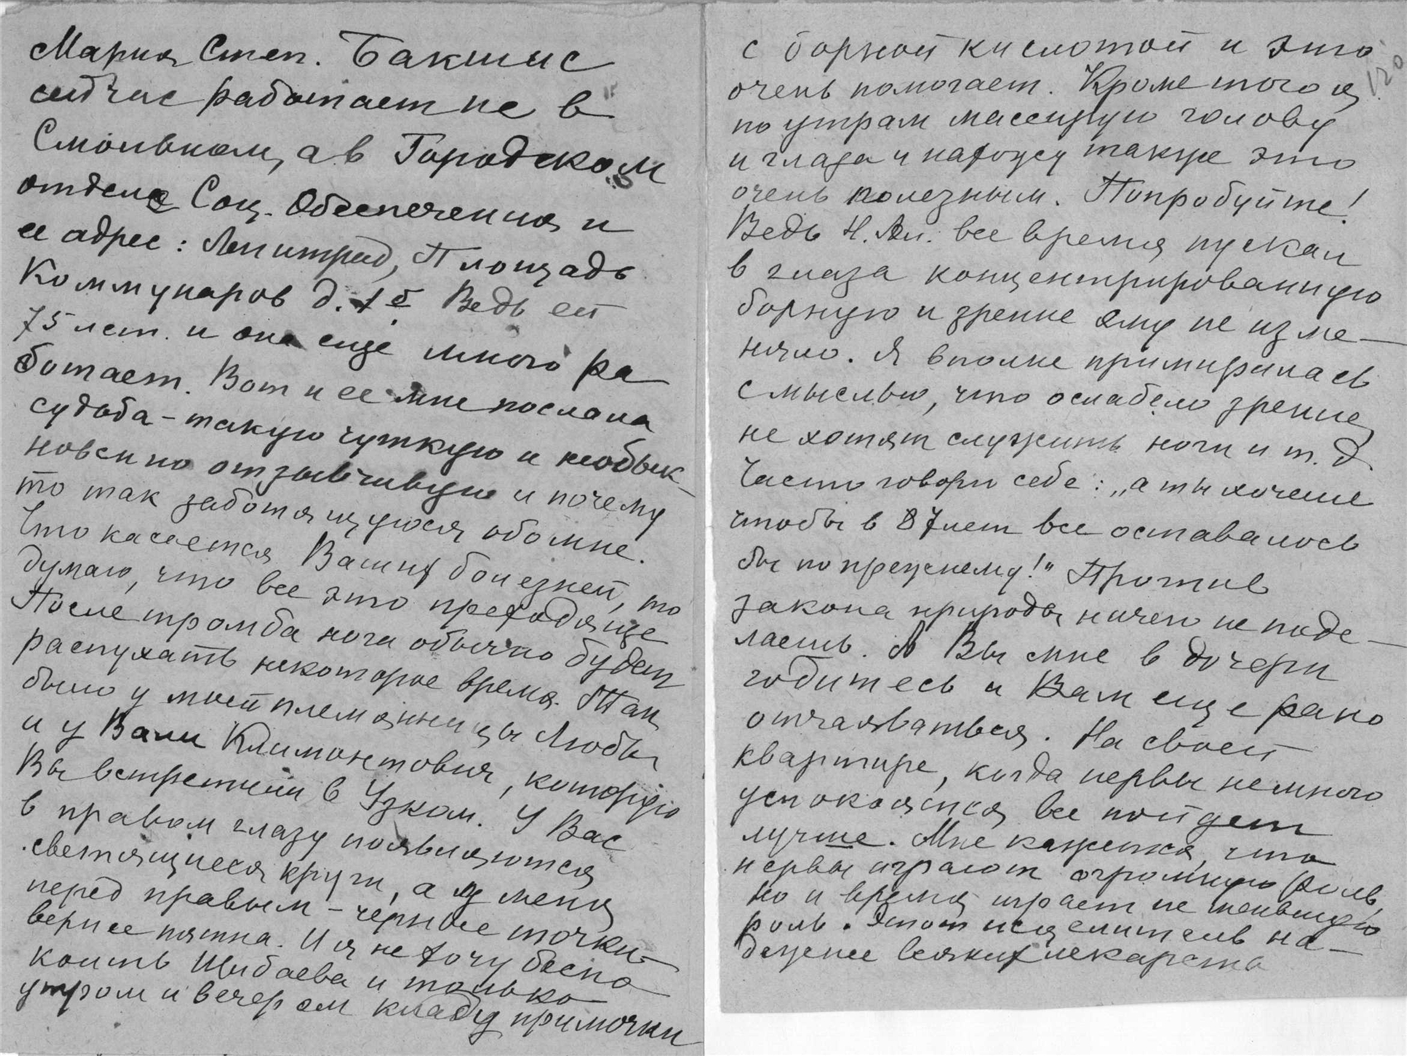 Мария Степ. Бакшис
сейчас работает не в
Смольном, а в Городском
отделе Соц. Обеспечения и
ее адрес: Ленинград, Площадь
Коммунаров д. Ведь ей
75 лет. и она еще много ра
ботает. Вот и ее мне послала
судьба – такую чуткую и необык-
новенно отзывчивую и почему
то так заботящуюся обо мне.
Что касается Ваших болезней, то
думаю, что все это преходяще
После тромба ноги обычно будет
распухать некоторое время. Так
было у моей племянницы Любы
и у Вали Климонтович, которую
Вы встретили в Узком. У Вас
в правом глазу появляются
светящиеся круги, а у меня
перед правым – черные точки –
вернее пятна. И я не хочу беспо
коить Шибаева и только
утром и вечером кладу примочки
с борной кислотой и это
очень помогает. Кроме того я
по утрам массирую голову
и глаза и нахожу также это
очень полезным. Попробуйте!
Ведь Н. Ал. все время пускал
в глаза концентрированную
борную и зрение ему не изме–
няло. Я вполне примирилась
с мыслью, что ослабело зрение,
не хотят служить ноги и т. д.
Часто говорю себе: „а ты хочешь
чтобы в 87 лет все оставалось
бы по прежнему!" Против
закона природы ничего не поде–
лаешь. А Вы мне в дочери
годитесь и Вам еще рано
отчаяваться. На своей
квартире, когда нервы немного
успокоятся все пойдет
лучше. Мне кажется, что
нервы играют огромную роль,
но и время играет не меньшую
роль. Этот исцелитель на–
дежнее всяких лекарств
120